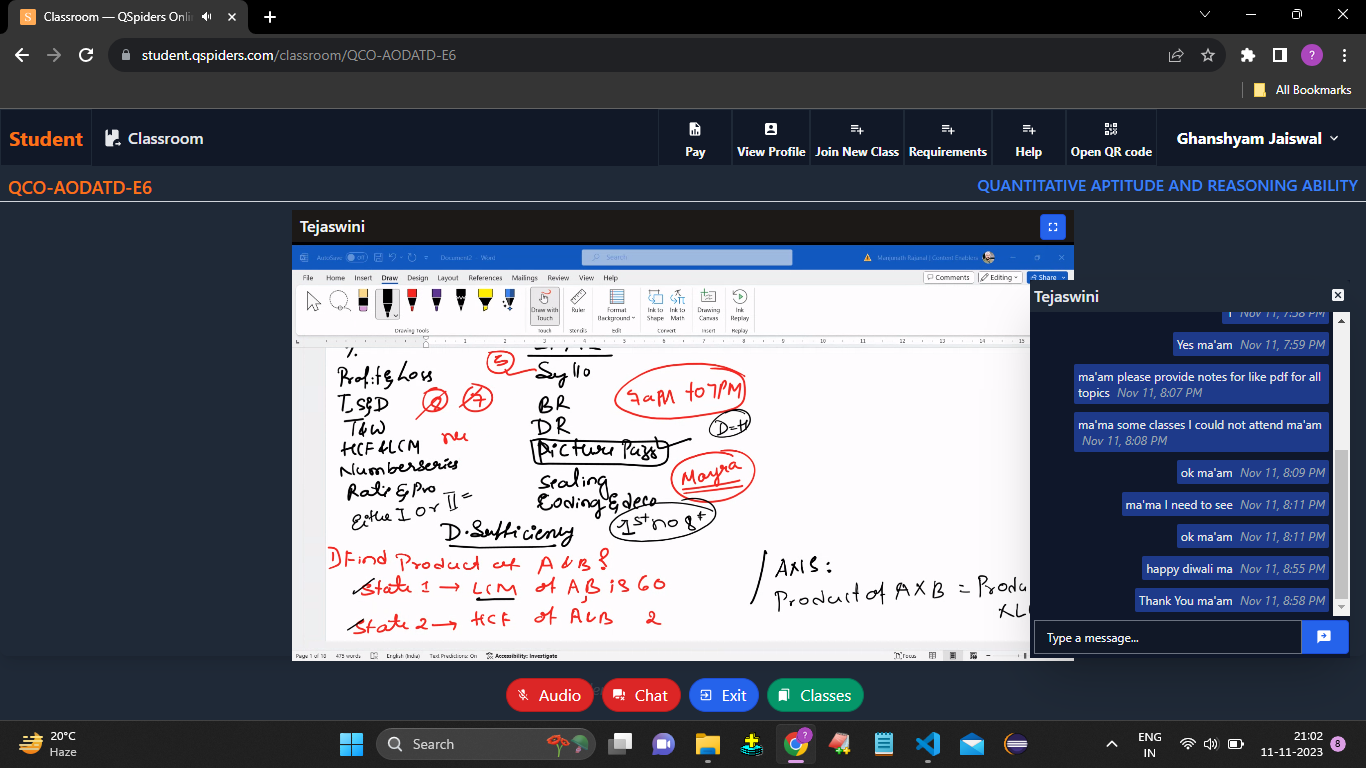 Classroom — QSpiders Onli
student.qspiders.com/classroom/QCO-AODATD-E6
All Bookmarks
Student
Classroom
Pay
View Profile
Join New Class
Requirements
Help
Open QR code
Ghanshyam Jaiswal
QCO-AODATD-E6
QUANTITATIVE APTITUDE AND REASONING ABILITY
Tejaswini
AutoSave Off Document2 Word
Search
Manjunath Rajanal | Content Enablers
File Home Insert Draw Design Layout References Mailings Review View Help
Comments Editing Share
Draw with Touch
Ruler
Format Background
Ink to Shape
Ink to Math
Drawing Canvas
Ink Replay
Drawing Tools Touch Stencils Edit Convert Insert Replay
%.
Profit & Loss
T, S&D
T&W
HCF & LCM
Number series
Ratio & Pro
Either I or II =
5
Syllo
BR
DR
Picture Puzzl
sealing
Coding & deco
7
7AM to 7PM
D=H
Mayra
1st no 8t
D.Sufficiency
1) Find Product of A & B {
State 1 → LCM of A, B is 60
State 2 → HCF of A & B 2
ANS:
Product of A X B = Produ
XL
Page 1 of 10 475 words English (India) Text Predictions: On Accessibility: Investigate
Focus
Tejaswini
Nov 11, 7:58 PM
Yes ma'am Nov 11, 7:59 PM
ma'am please provide notes for like pdf for all
topics Nov 11, 8:07 PM
ma'ma some classes I could not attend ma'am
Nov 11, 8:08 PM
ok ma'am Nov 11, 8:09 PM
ma'ma I need to see Nov 11, 8:11 PM
ok ma'am Nov 11, 8:11 PM
happy diwali ma Nov 11, 8:55 PM
Thank You ma'am Nov 11, 8:58 PM
Type a message...
Audio
Chat
Exit
Classes
20°C
Haze
Search
ENG
IN
21:02
11-11-2023
8